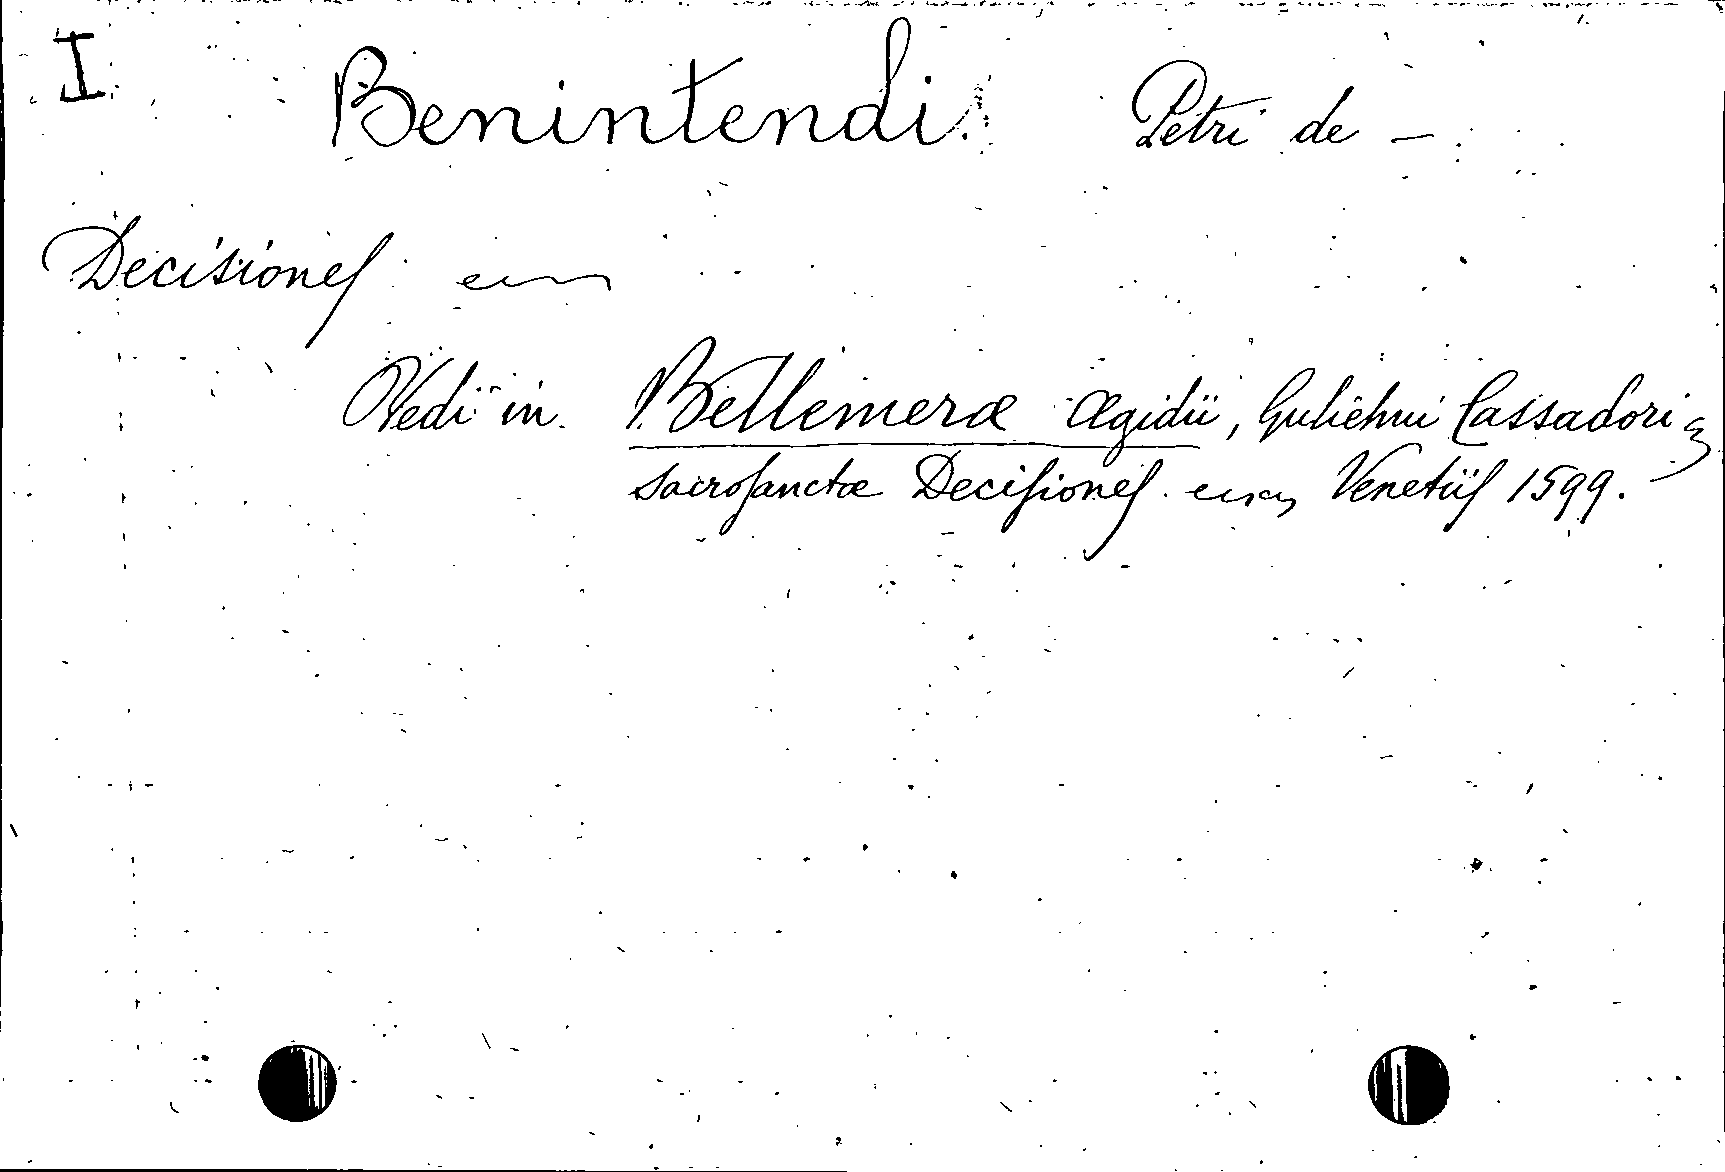 I Benintendi. Petri de —
Decisiones
Vedi in Bellemeræ Ægidii, Gulielmi Cassadori
sacrosanctæ Decisiones Venetiis 1599.